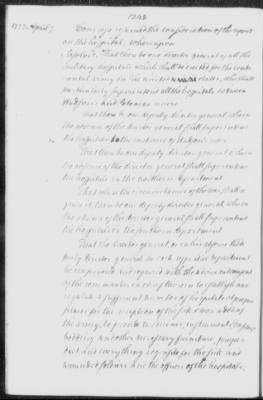 1777 April 7
Congress resumed the consideration of the report
on the hospital, whereupon
Resolved, That there be one director general of all the
military hospitals which shall be erected for the conti-
nental army in the United States, who shall
particularly superintend all the hospitals between
Hudson's and Potomac rivers
That there be one deputy director general, who in
the absence of the director general shall superintend
the hospitals to the eastward of Hudson's river
That there be one deputy director general, who in
the absence of the director general shall superintend
the hospitals in the northern department
That when the circumstances of the war shall re
quire it, there be one deputy director general who in
the absence of the director general shall superintend
the hospitals in the southern department
That the director general, or in his absence the de
puty director general in each respective department
be empowered and required with the advice and consent
of the commander in chief of the army to establish and
regulate a sufficient number of hospitals at proper
places for the reception of the sick & wounded of
the army, to provide medicines, instruments, dressings
bedding and other necessary furniture, proper
diet and every thing requisite for the sick and
wounded soldiers and the officers of the hospitals.